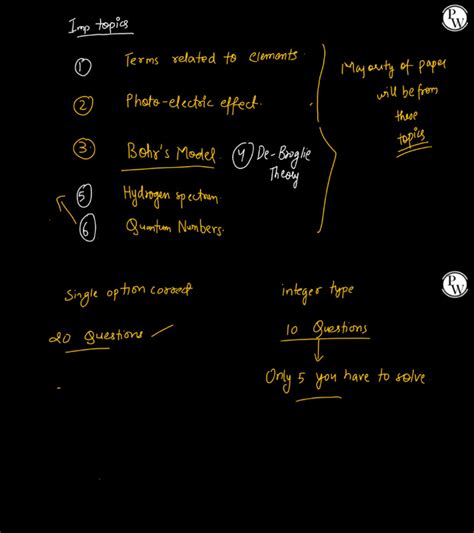 Imp topics
P
W
① Terms related to elements.
② Photo-electric effect.
③ Bohr's Model. ④ De-Broglie
Theory
⑤ Hydrogen spectrum.
⑥ Quantum Numbers.
Majority of paper
will be from
these
topics
P
W
Single option correct
20 Questions
integer type
10 Questions
Only 5 you have to solve